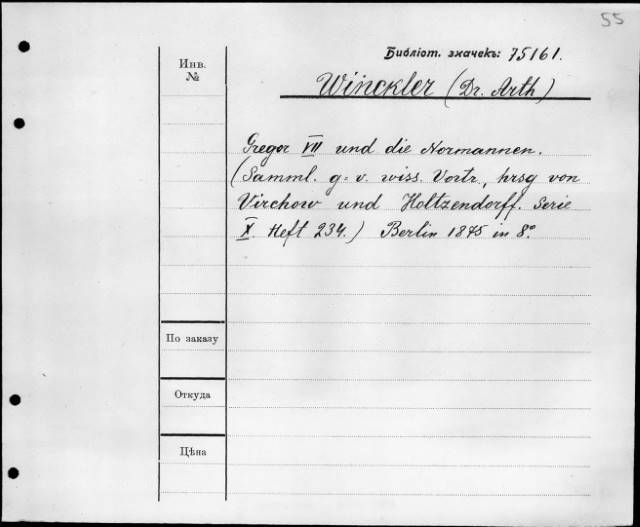 55
Библіот. значекъ: 75161.
Инв.
№
Winckler (Dr. Arth)
Gregor VII und die Normannen.
(Samml. g= v. wiss. Vortr., hrsg von
Virchow und Holtzendorff. Serie
X. Heft 234.) Berlin 1875 in 8°
По заказу
Откуда
Цѣна